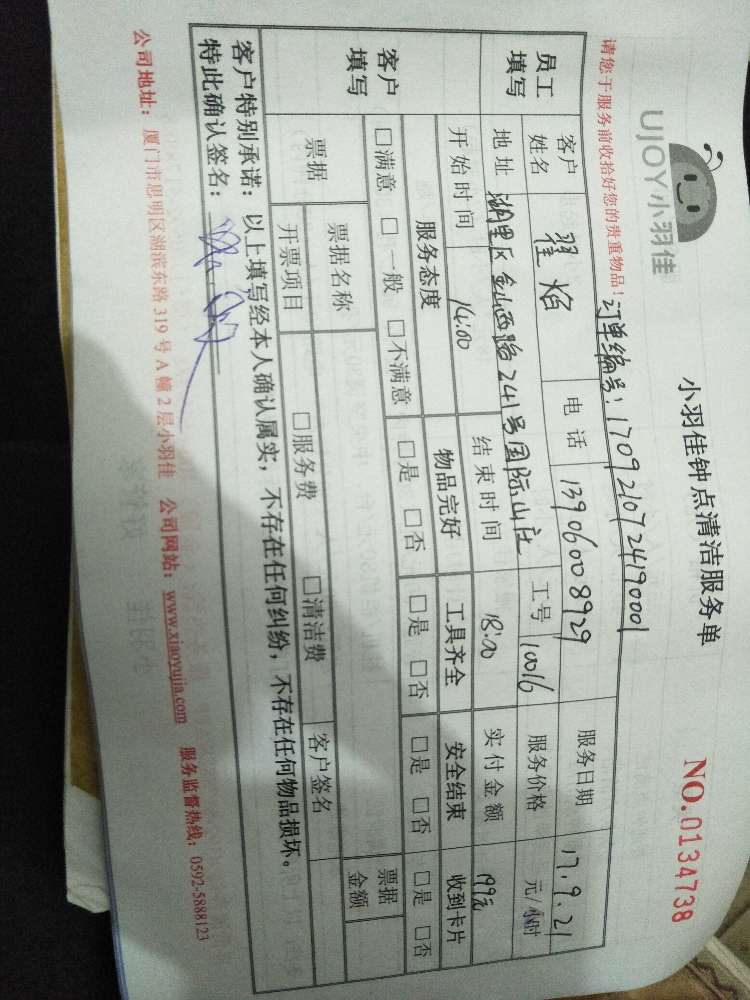 UJOY小羽佳
小羽佳钟点清洁服务单
NO.0134738
请您于服务前收拾好您的贵重物品!
订单编号:1709210724190001
员工填写
客户姓名 翟焰 电话 13906008929 服务日期 17.9.21
地址 湖里区金山西路241号国际山庄 工号 10016 服务价格 元/小时
开始时间 14:00 结束时间 18:00 实付金额 199元
客户填写
服务态度 物品完好 工具齐全 安全结束 收到卡片
□满意 □一般 □不满意 □是 □否 □是 □否 □是 □否 □是 □否
票据 票据名称 □服务费 □清洁费 票据金额
开票项目 客户签名
客户特别承诺:以上填写经本人确认属实,不存在任何纠纷,不存在任何物品损坏。
特此确认签名:
公司地址:厦门市思明区湖滨东路319号A幢2层小羽佳 公司网站:www.xiaoyujia.com 服务监督热线:0592-5888123